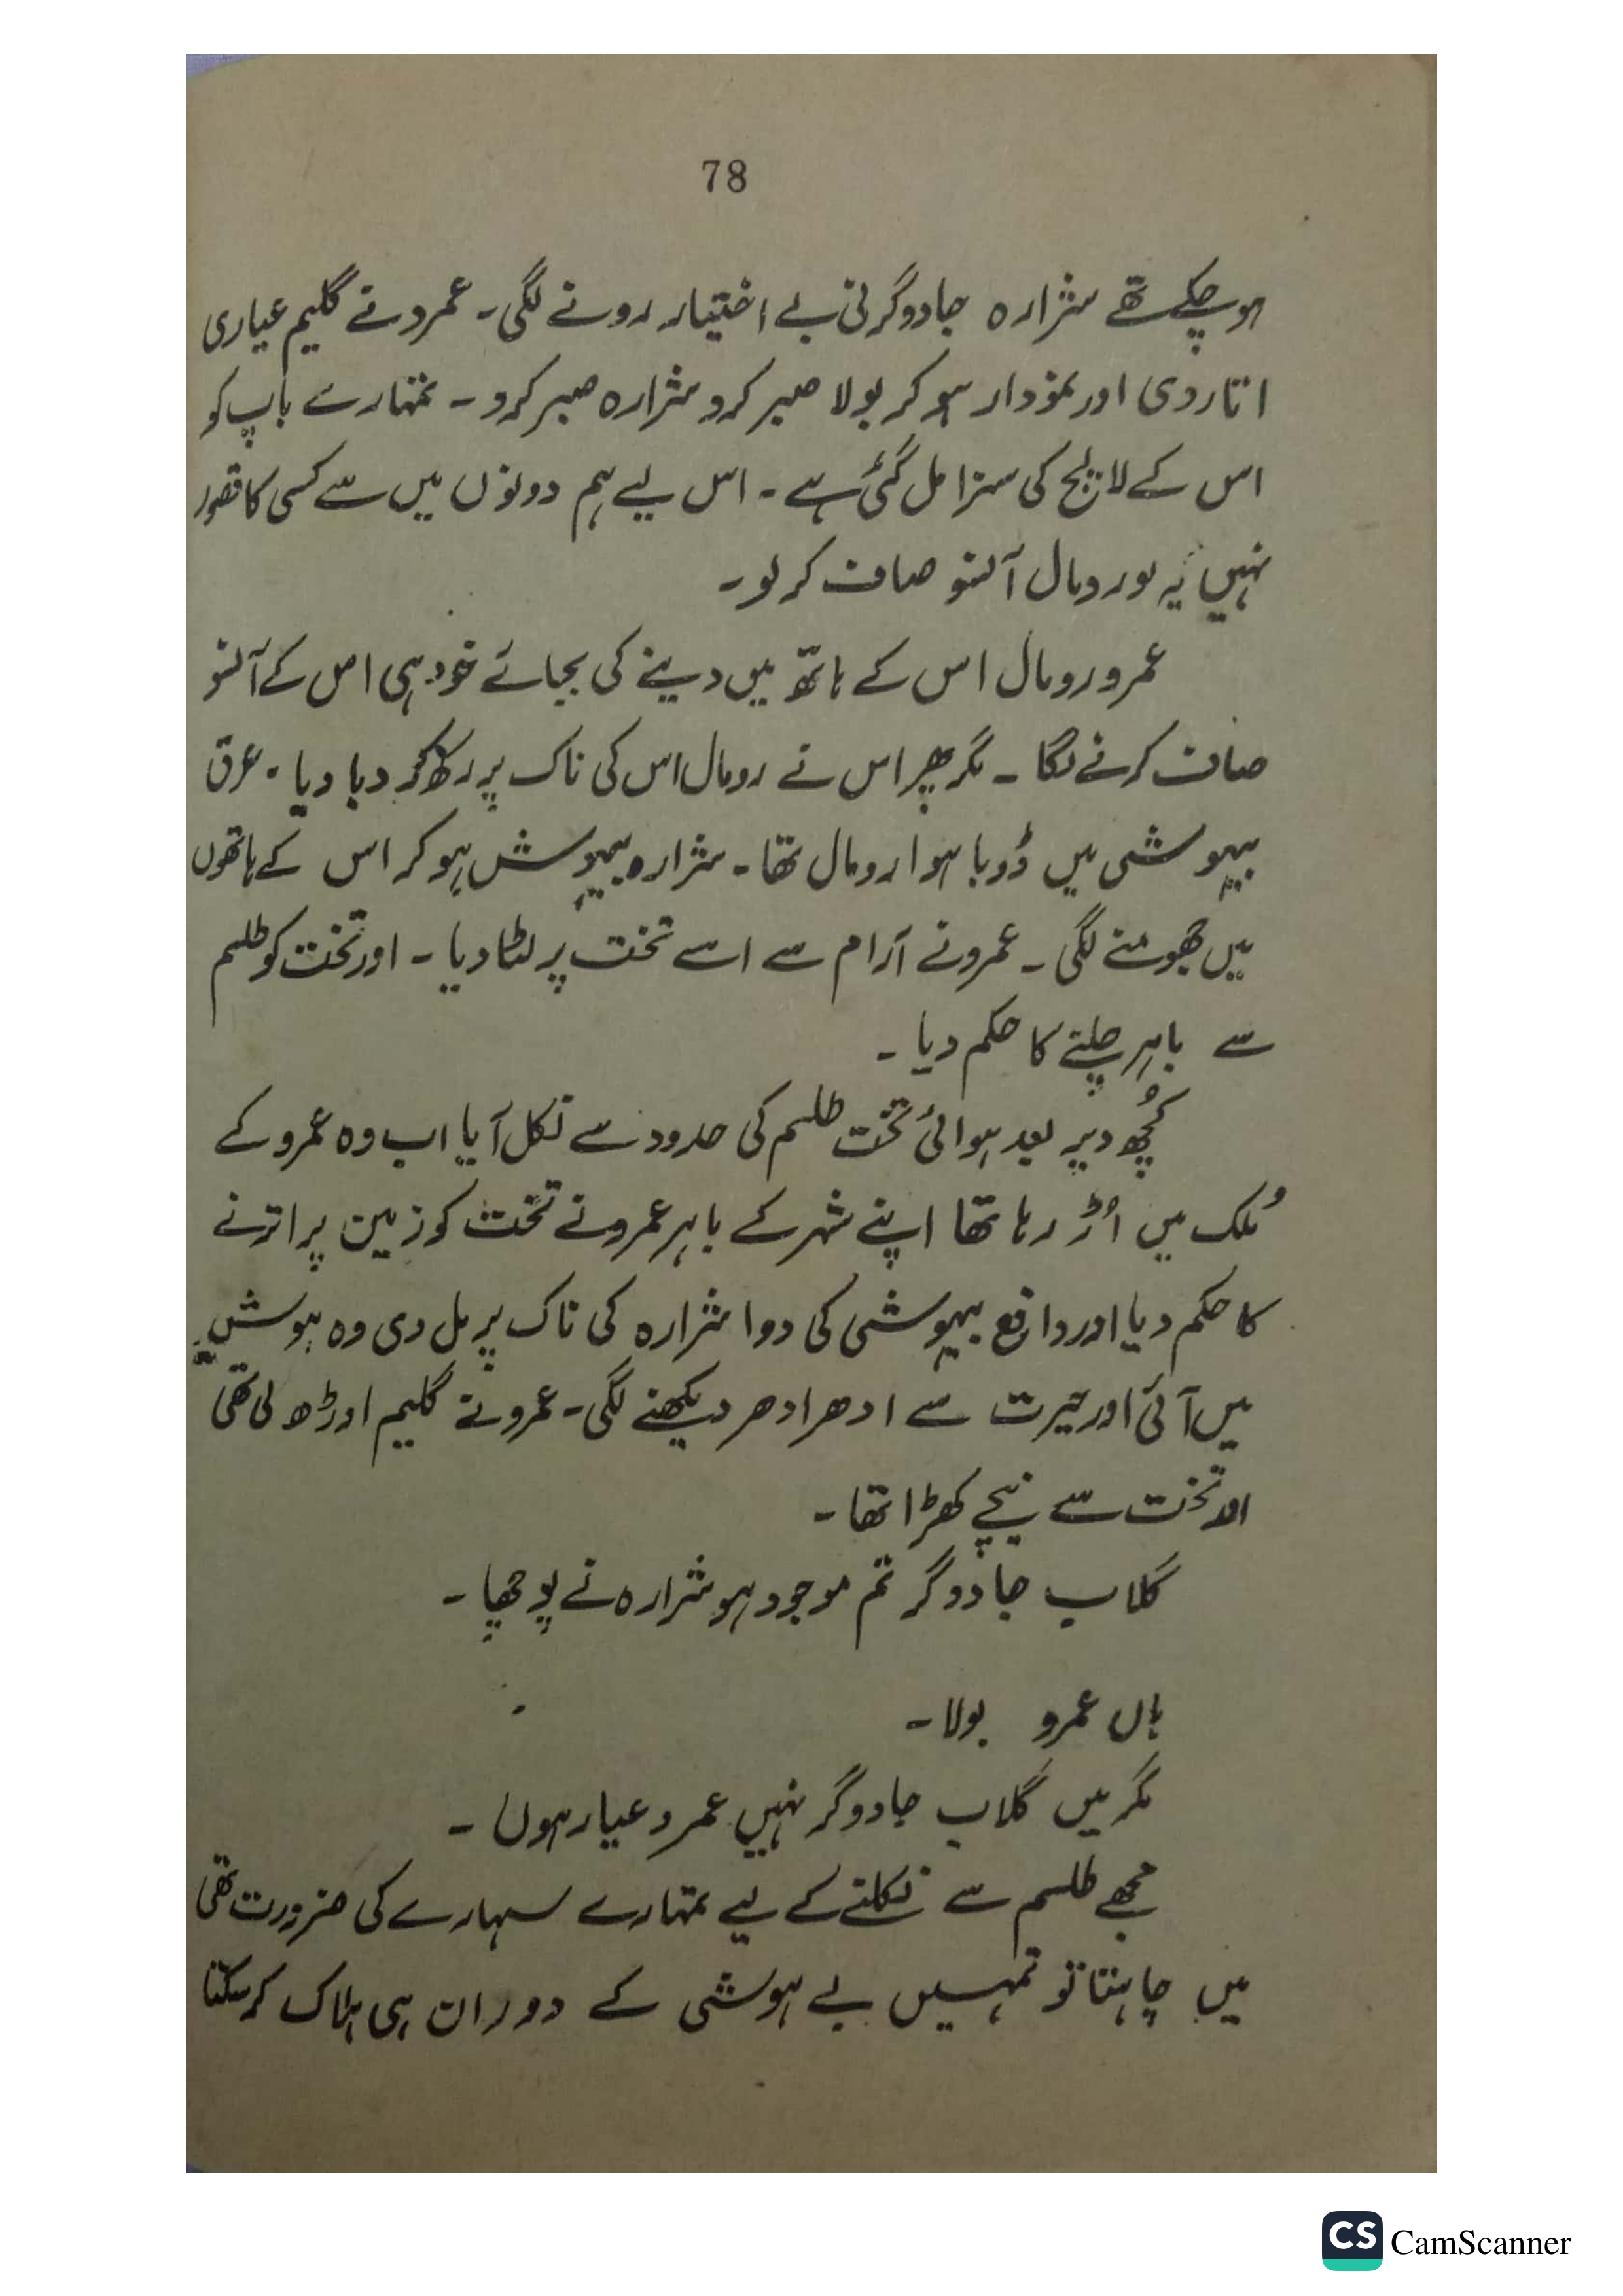 78
ہوچکے تھے شرارہ جادوگرنی بے اختیار رونے لگی۔ عمرو نے گلیم عیاری
اتار دی اور نمودار ہو کر بولا صبر کرو شرارہ صبر کرو۔ تمہارے باپ کو
اس کے لالچ کی سزا مل گئی ہے۔ اس لیے ہم دونوں میں سے کسی کا قصور
نہیں یہ لو رومال آنسو صاف کر لو۔
عمرو رومال اس کے ہاتھ میں دینے کی بجائے خود ہی اس کے آنسو
صاف کرنے لگا۔ مگر پھر اس نے رومال اس کی ناک پر رکھ کر دبا دیا۔ عرق
بیہوشی میں ڈوبا ہوا رومال تھا۔ شرارہ بیہوش ہو کر اس کے ہاتھوں
میں جھومنے لگی۔ عمرو نے آرام سے اسے تخت پر لٹا دیا۔ اور تخت کو طلسم
سے باہر چلنے کا حکم دیا۔
کُچھ دیر بعد ہوائی تخت طلسم کی حدود سے نکل آیا اب وہ عمرو کے
مُلک میں اُڑ رہا تھا اپنے شہر کے باہر عمرو نے تخت کو زمین پر اترنے
کا حکم دیا اور دافع بیہوشی کی دوا شرارہ کی ناک پر مل دی وہ ہوش
میں آئی اور حیرت سے ادھر ادھر دیکھنے لگی۔ عمرو نے گلیم اوڑھ لی تھی
اور تخت سے نیچے کھڑا تھا۔
گلاب جادوگر تم موجود ہو شرارہ نے پوچھا۔
ہاں عمرو بولا۔
مگر میں گلاب جادوگر نہیں عمرو عیار ہوں۔
مجھے طلسم سے نکلنے کے لیے تمہارے سہارے کی ضرورت تھی
میں چاہتا تو تمہیں بے ہوشی کے دوران ہی ہلاک کر سکتا
CS CamScanner